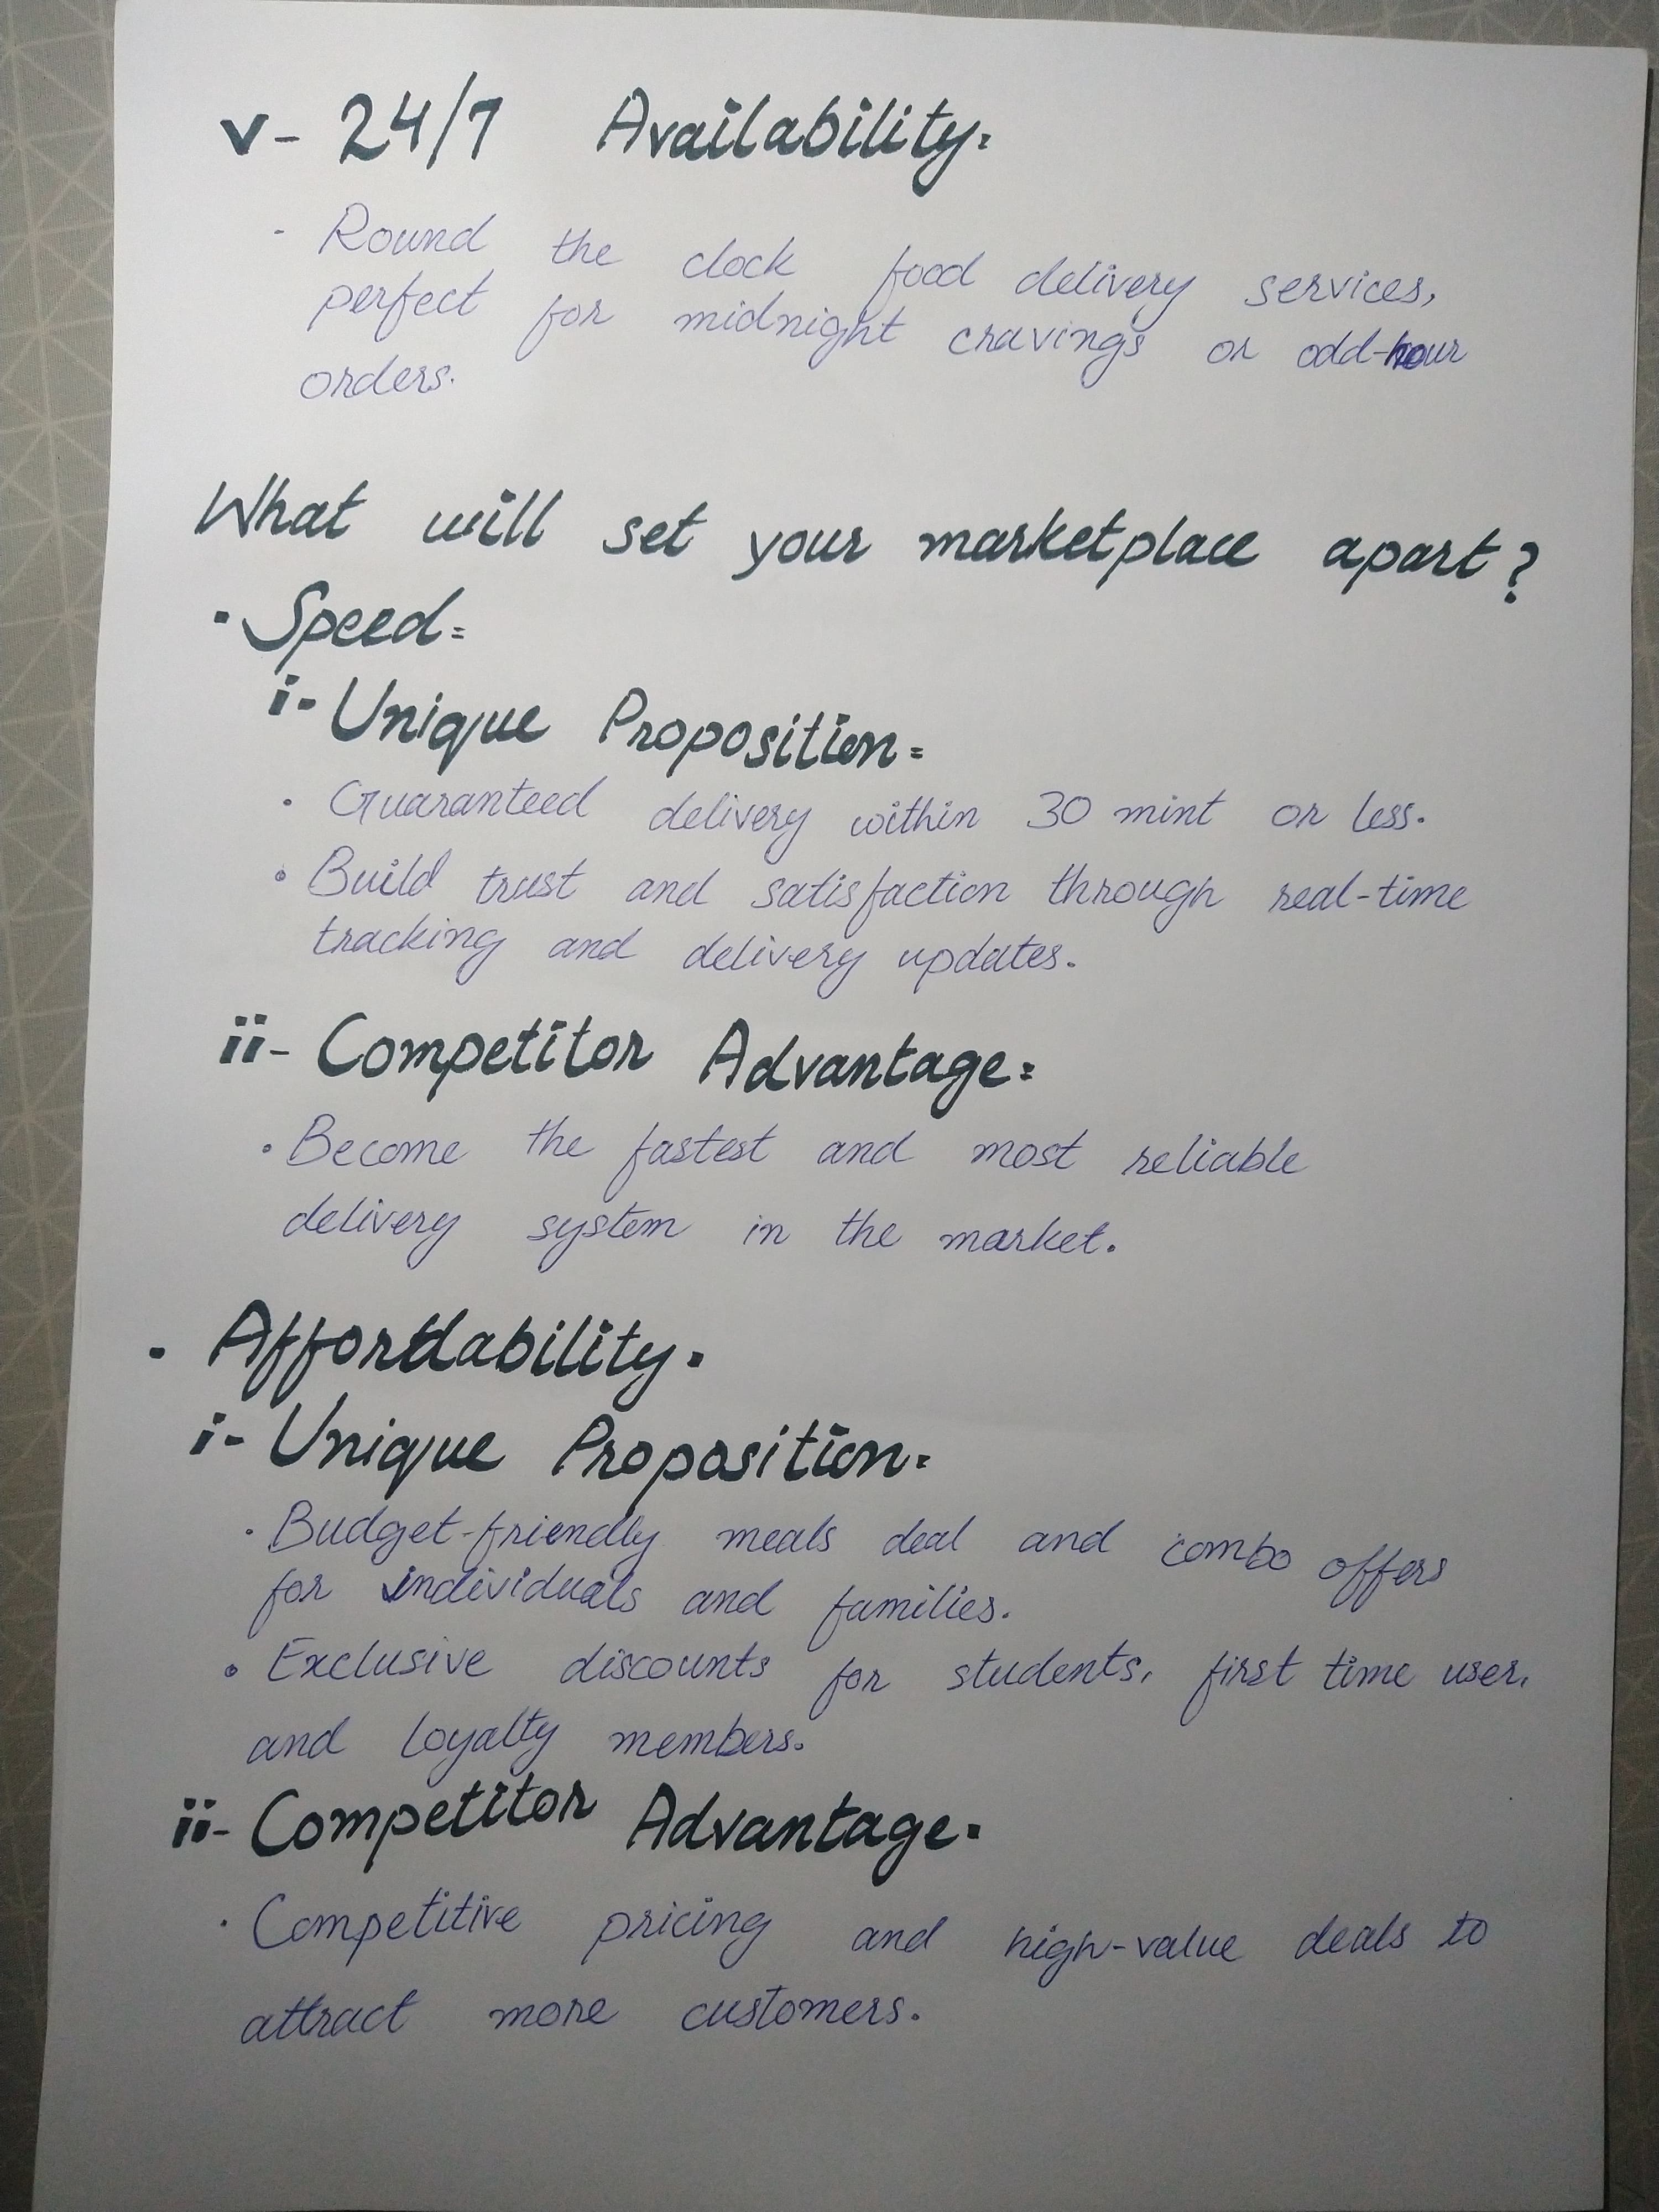 v- 24/7 Availability:
- Round the clock food delivery services,
perfect for midnight cravings or odd-hour
orders.
What will set your marketplace apart?
• Speed:
i- Unique Proposition:
• Guaranteed delivery within 30 mint or less.
• Build trust and satisfaction through real-time
tracking and delivery updates.
ii- Competitor Advantage:
• Become the fastest and most reliable
delivery system in the market.
• Affordability:
i- Unique Proposition:
• Budget-friendly meals deal and combo offers
for individuals and families.
• Exclusive discounts for students, first time user,
and loyalty members.
ii- Competitor Advantage:
• Competitive pricing and high-value deals to
attract more customers.